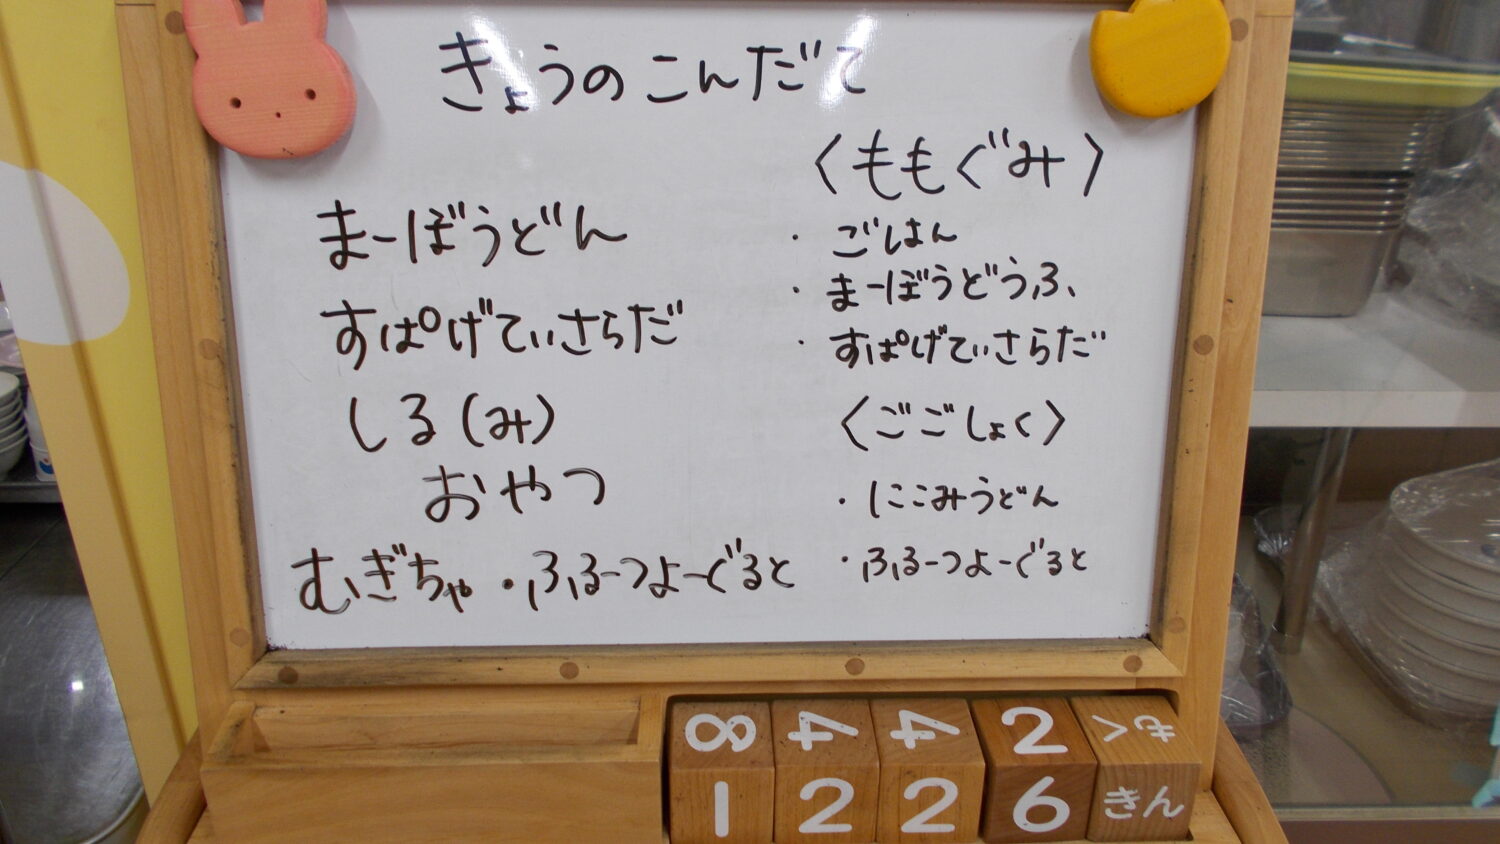 きょうのこんだて
まーぼうどん
すぱげてぃさらだ
しる(み)
おやつ
むぎちゃ・ふるーつよーぐると
〈ももぐみ〉
・ごはん
・まーぼうどうふ、
・すぱげてぃさらだ
〈ごごしょく〉
・にこみうどん
・ふるーつよーぐると
8 4 4 2 もく
1 2 2 6 きん